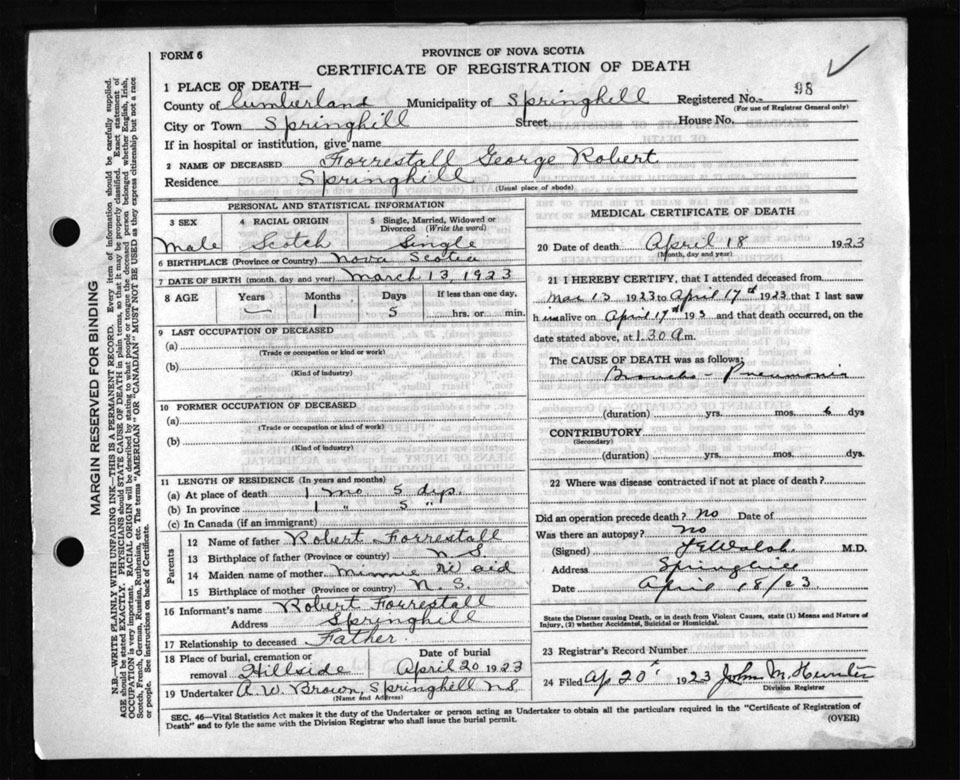 FORM 6
PROVINCE OF NOVA SCOTIA
CERTIFICATE OF REGISTRATION OF DEATH
1 PLACE OF DEATH—
County of Cumberland Municipality of Springhill Registered No. 98
(For use of Registrar General only)
City or Town Springhill Street House No.
If in hospital or institution, give name
2 NAME OF DECEASED Forrestall George Robert
Residence Springhill
(Usual place of abode)
PERSONAL AND STATISTICAL INFORMATION
3 SEX 4 RACIAL ORIGIN 5 Single, Married, Widowed or
Divorced (Write the word)
Male Scotch Single
6 BIRTHPLACE (Province or Country) Nova Scotia
7 DATE OF BIRTH (month, day and year) March 13, 1923
8 AGE Years Months Days If less than one day,
— 1 5 hrs. or min.
9 LAST OCCUPATION OF DECEASED
(a)
(Trade or occupation or kind or work)
(b)
(Kind of industry)
10 FORMER OCCUPATION OF DECEASED
(a)
(Trade or occupation or kind of work)
(b)
(Kind of industry)
11 LENGTH OF RESIDENCE (In years and months)
(a) At place of death 1 mo 5 dys.
(b) In province 1 " 5 "
(c) In Canada (if an immigrant)
Parents
12 Name of father Robert Forrestall
13 Birthplace of father (Province or country) N S
14 Maiden name of mother Minnie
15 Birthplace of mother (Province or country) N. S.
16 Informant's name Robert Forrestall
Address Springhill
17 Relationship to deceased Father.
18 Place of burial, cremation or Date of burial
removal Hillside April 20 1923
19 Undertaker A. W. Brown, Springhill N S.
(Name and Address)
MEDICAL CERTIFICATE OF DEATH
20 Date of death April 18 1923
(Month, day and year)
21 I HEREBY CERTIFY, that I attended deceased from
Mar 13 1923 to April 17th 1923 that I last saw
h im alive on April 17th 193 and that death occurred, on the
date stated above, at 1.30 A m.
The CAUSE OF DEATH was as follows:
Broncho - Pneumonia
(duration) yrs. mos. 6 dys
CONTRIBUTORY
(Secondary)
(duration) yrs. mos. dys.
22 Where was disease contracted if not at place of death?
Did an operation precede death? no Date of
Was there an autopsy? no
(Signed) Walsh M.D.
Address Springhill
Date April 18/23
State the Disease causing Death, or in death from Violent Causes, state (1) Means and Nature of
Injury, (2) whether Accidental, Suicidal or Homicidal.
23 Registrar's Record Number
24 Filed Ap 20th 1923 John M. Hunter
Division Registrar
SEC. 46—Vital Statistics Act makes it the duty of the Undertaker or person acting as Undertaker to obtain all the particulars required in the "Certificate of Registration of
Death" and to fyle the same with the Division Registrar who shall issue the burial permit.
(OVER)
MARGIN RESERVED FOR BINDING
N.B.—WRITE PLAINLY WITH UNFADING INK—THIS IS A PERMANENT RECORD. Every item of information should be carefully supplied.
AGE should be stated EXACTLY. PHYSICIANS should STATE CAUSE OF DEATH in plain terms, so that it may be properly classified. Exact statement of
OCCUPATION is very important. RACIAL ORIGIN will be described by stating to what people or tongue the deceased person belonged whether English, Irish,
Scotch, French, German, Russian, Ruthenian, etc. The terms "AMERICAN" OR "CANADIAN" MUST NOT BE USED as they express citizenship but not a race
or people. See instructions on back of Certificate.